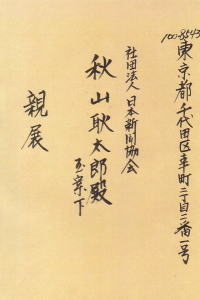 100-8543
東京都千代田区幸町二丁目二番一号
社団法人 日本新聞協会
秋山耿太郎殿
玉案下
親展